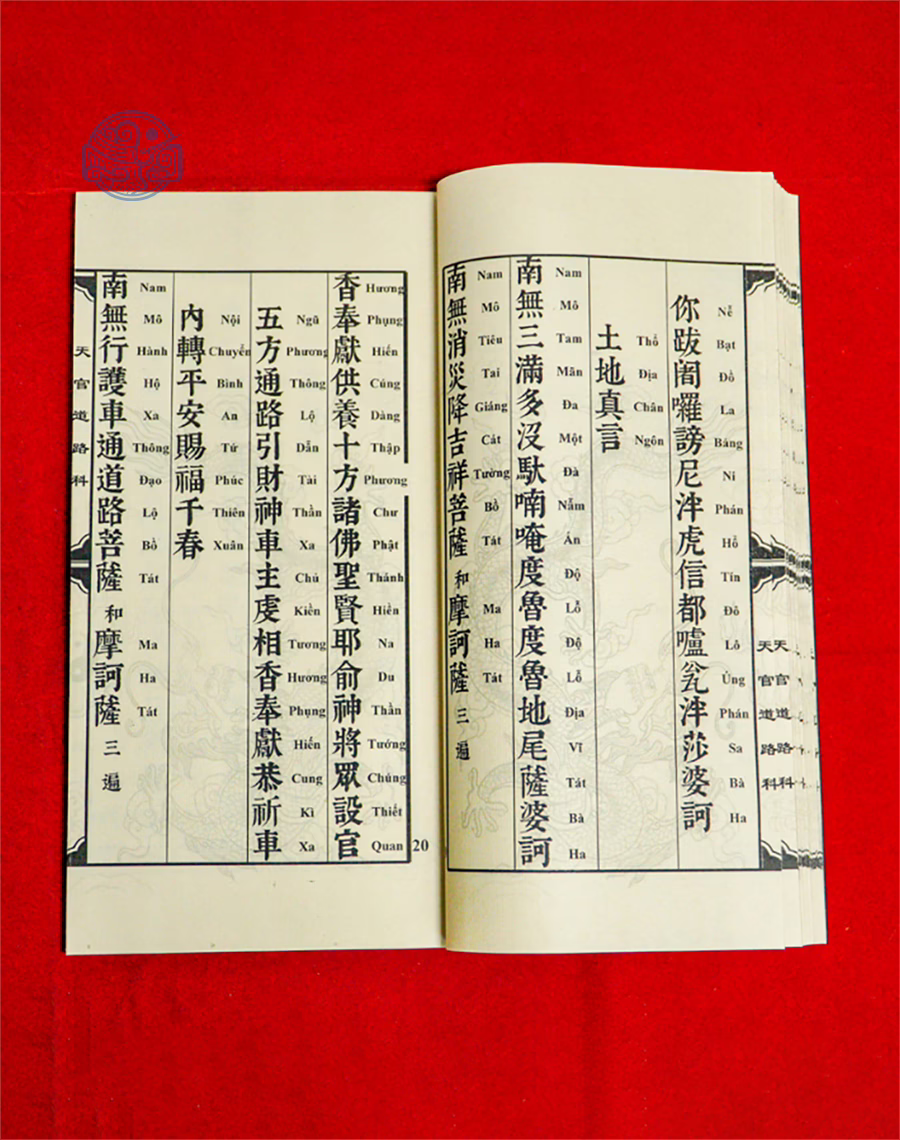 你跋闍囉謗尼泮虎信都嚧瓮泮莎婆訶
Nễ Bạt Đồ La Báng Ni Phán Hồ Tín Đô Lô Ủng Phán Sa Bà Ha
土地真言
Thổ Địa Chân Ngôn
南無三滿多沒馱喃唵度魯度魯地尾薩婆訶
Nam Mô Tam Mãn Đa Một Đà Nẫm Án Độ Lỗ Độ Lỗ Địa Vĩ Tát Bà Ha
南無消災降吉祥菩薩 和 摩訶薩 三 遍
Nam Mô Tiêu Tai Giáng Cát Tường Bồ Tát Ma Ha Tát
天官道路科
天官道路科
香奉獻供養十方諸佛聖賢耶俞神將眾設官
Hương Phụng Hiến Cúng Dàng Thập Phương Chư Phật Thánh Hiền Na Du Thần Tướng Chúng Thiết Quan
五方通路引財神車主虔相香奉獻恭祈車
Ngũ Phương Thông Lộ Dẫn Tài Thần Xa Chủ Kiền Tương Hương Phụng Hiến Cung Kì Xa
內轉平安賜福千春
Nội Chuyển Bình An Tứ Phúc Thiên Xuân
南無行護車通道路菩薩 和 摩訶薩 三 遍
Nam Mô Hành Hộ Xa Thông Đạo Lộ Bồ Tát Ma Ha Tát
天官道路科
20